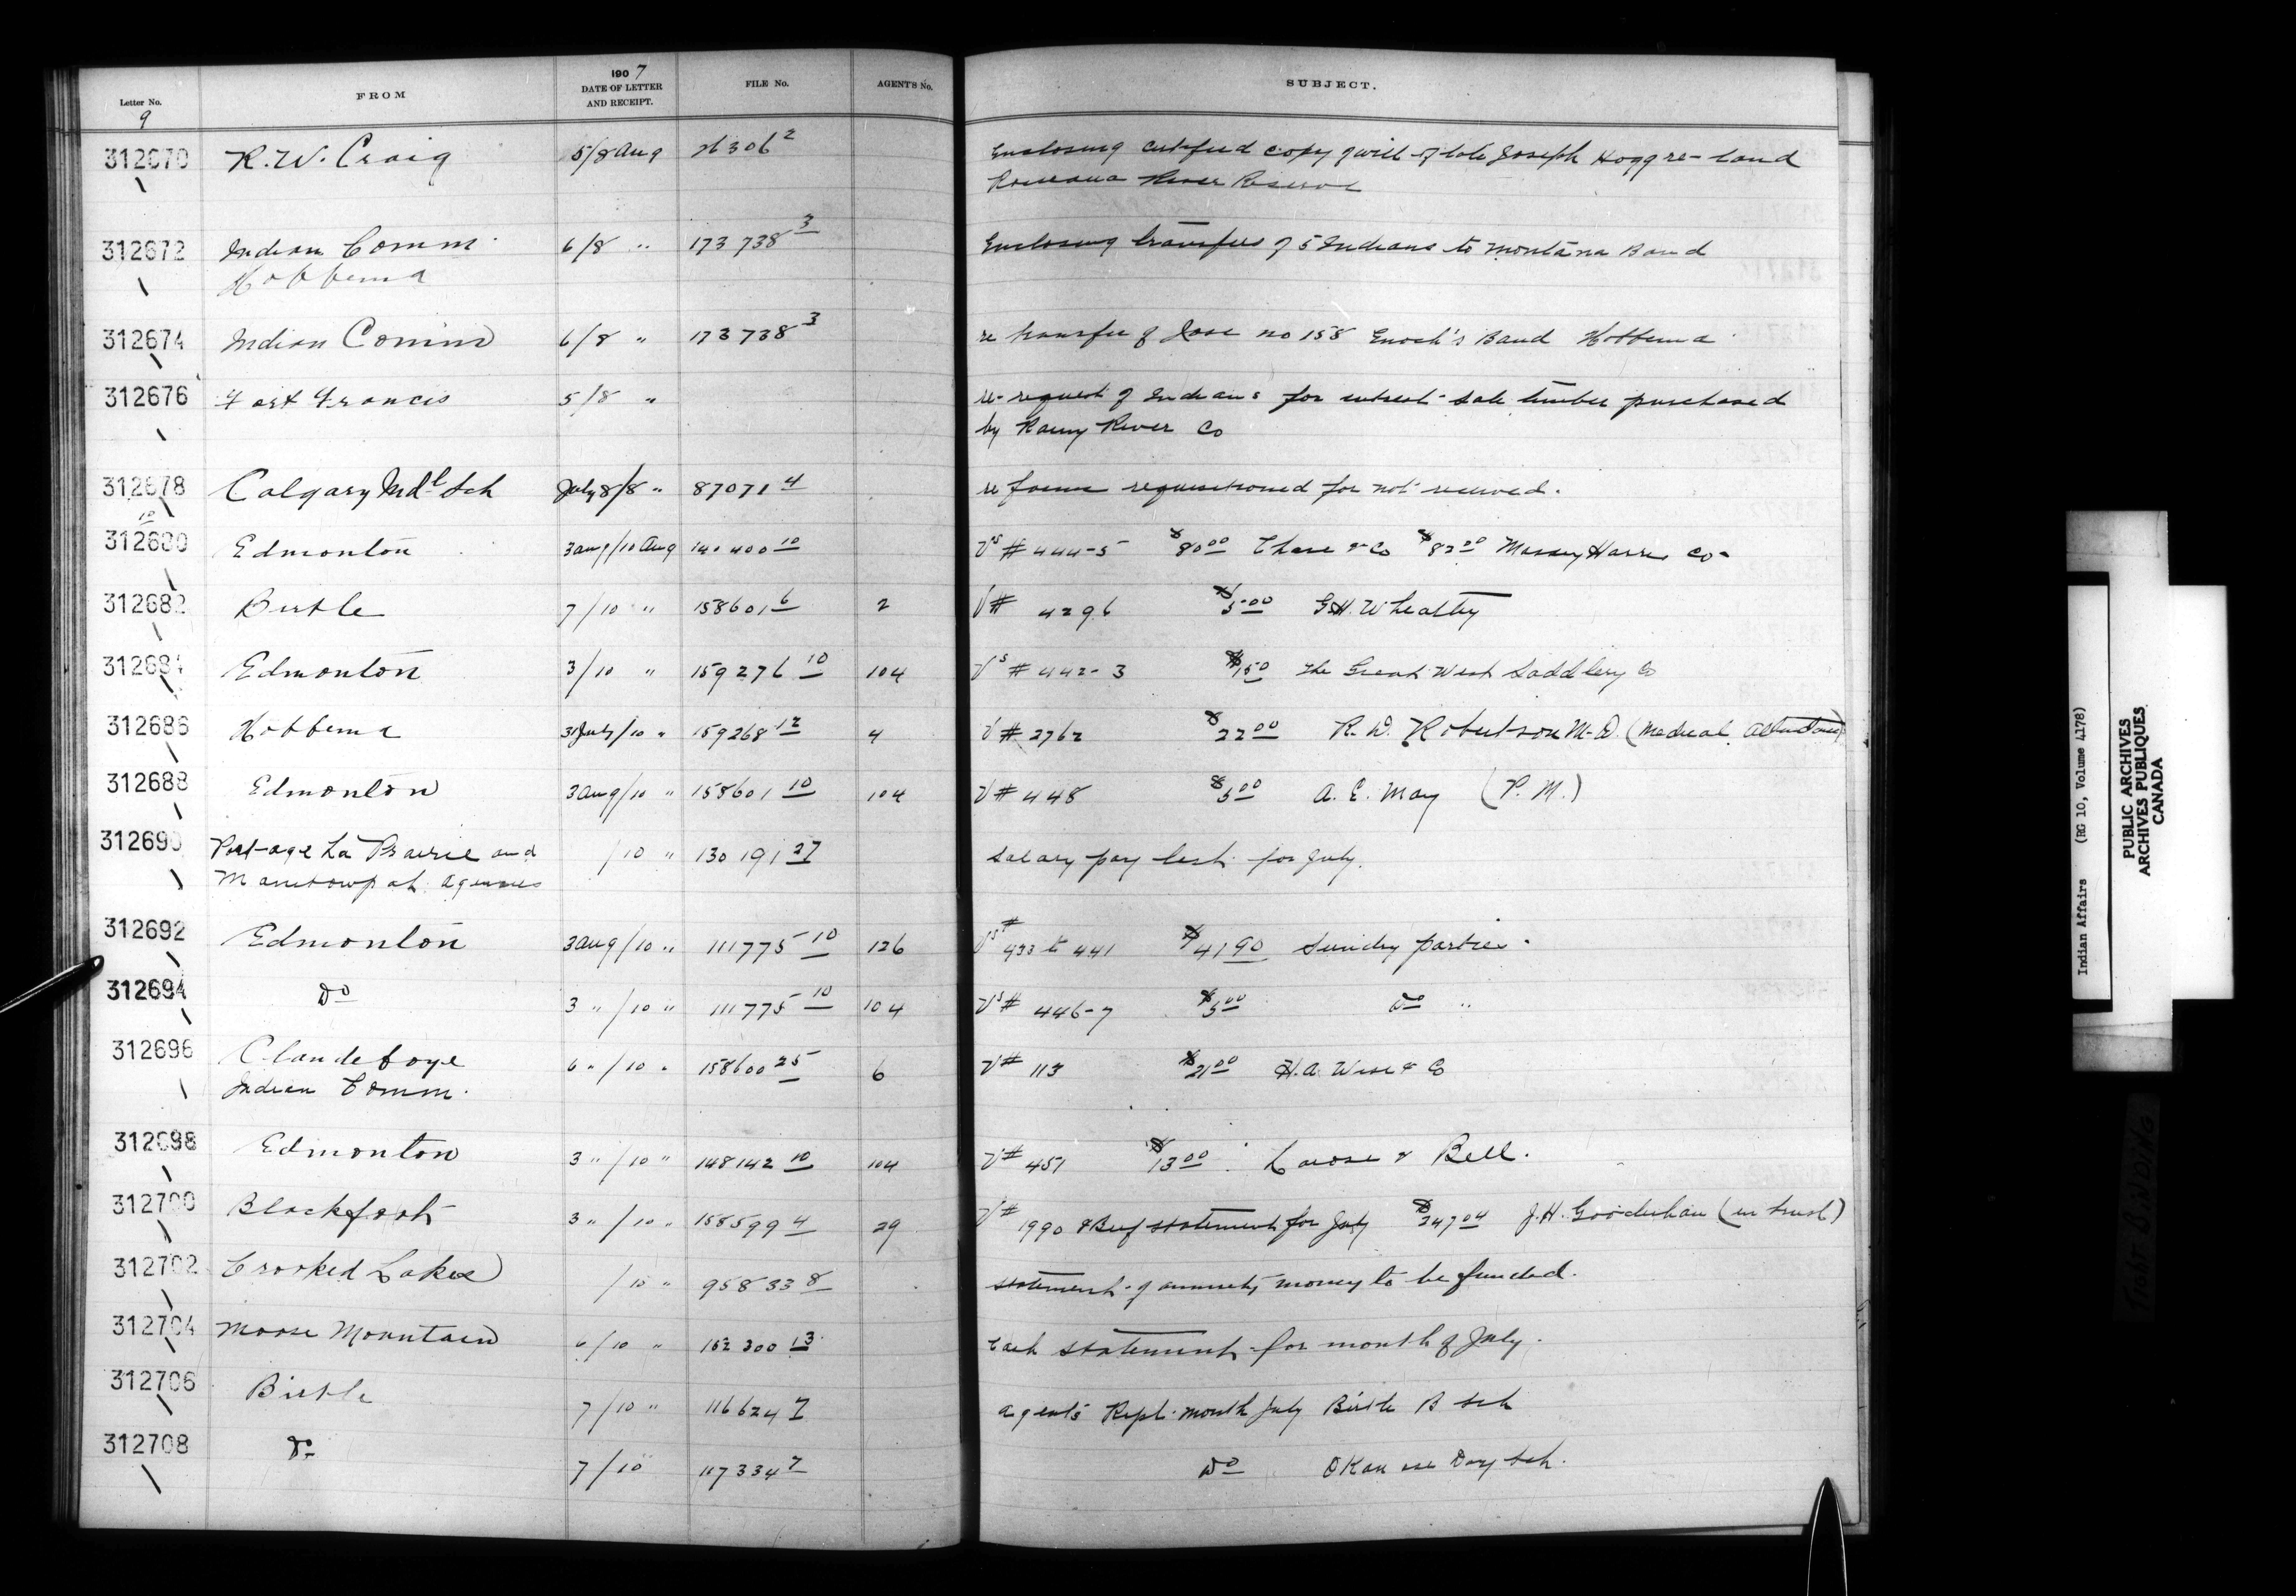 Letter No. FROM 1907 DATE OF LETTER AND RECEIPT. FILE No. AGENT'S No. SUBJECT.
9
312670 R. W. Craig 5/8 Aug 26306 2 Enclosing certified copy of will of late Joseph Hogg re- land
Roseau River Reserve
312672 Indian Comm. 6/8 " 173738 3 Enclosing transfers of 5 Indians to Montana Band
Hobbema
312674 Indian Comm 6/8 " 173738 3 re transfer of Jose no 158 Enoch's Band Hobbema
312676 Fort Francis 5/8 " re- request of Indians for interest sale timber purchased
by Rainy River Co
312678 Calgary Indl Sch July 8/8 " 87071 4 re forms requisitioned for not received.
10
312680 Edmonton 3 Aug/10 Aug 140400 10 Vs # 444-5 $80 00 Chase & Co $82 20 Massey Harris Co-
312682 Birtle 7/10 " 158601 6 2 V# 4296 $5 00 G.H. Wheatley
312684 Edmonton 3/10 " 159276 10 104 Vs # 442-3 The Great West Saddlery Co
312686 Hobbema 31 July/10 " 159268 12 4 V# 2762 $22 00 R. D. Robertson M.D. (Medical Attendance)
312688 Edmonton 3 Aug/10 " 158601 10 104 V# 448 $5 00 A. E. May (P. M.)
312690 Portage La Prairie and /10 " 130191 27 Salary pay list for July.
Manitowpah Agencies
312692 Edmonton 3 Aug/10 " 111775 10 126 Vs # 433 to 441 $41 90 Sundry parties.
312694 Do 3 "/10 " 111775 10 104 Vs # 446-7 $5 00 Do "
312696 Clandeboye 6 "/10 " 158600 25 6 V# 113 $21 00 H. A. Wise & Co
Indian Comm.
312698 Edmonton 3 "/10 " 148142 10 104 V# 451 $13 00 Larose & Bell.
312700 Blackfoot 3 "/10 " 158599 4 29 V# 1990 & Beef statement for July $247 04 J. H. Gooderham (in trust)
312702 Crooked Lakes /10 " 95833 8 Statement of annuity money to be funded.
312704 Moose Mountain 6/10 " 152300 13 Cash statement for month of July.
312706 Birtle 7/10 " 116624 7 Agents Rept. month July Birtle B Sch
312708 Do 7/10 117334 7 Do Okanase Day Sch.
Indian Affairs (RG 10, Volume 4178)
PUBLIC ARCHIVES
ARCHIVES PUBLIQUES
CANADA
TIGHT BINDING